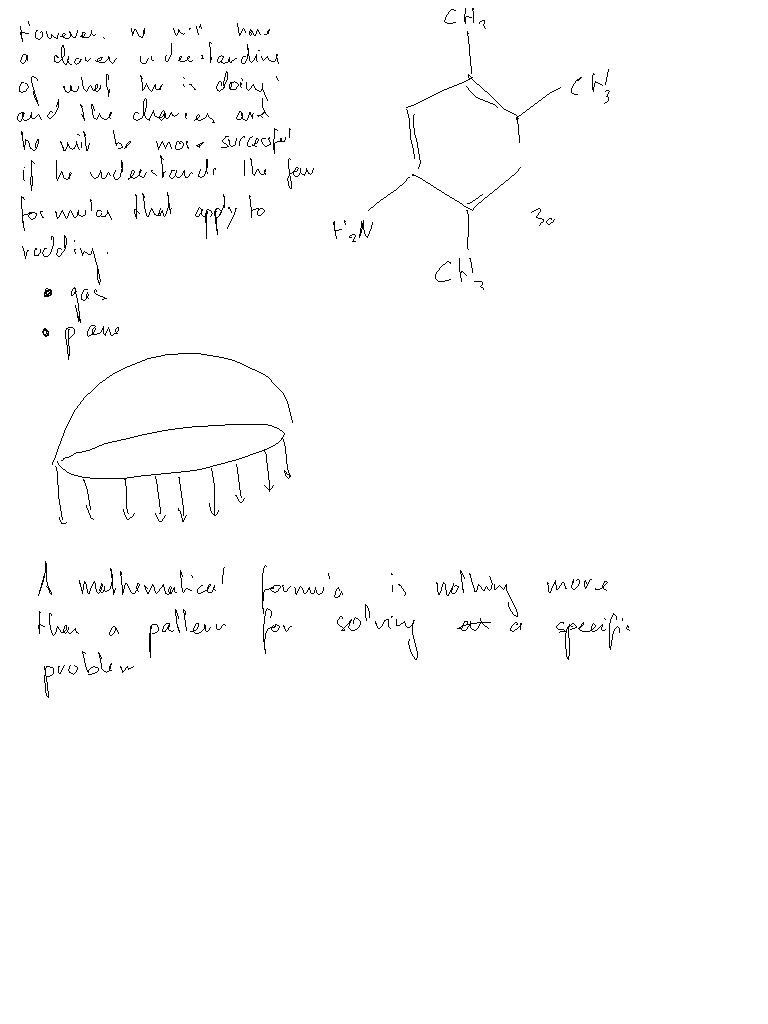 However, he will have
a clearer understanding
of what he is doing
and the chances are
he will be more successful
if he understands the few
formulas that apply to
rodding.
• gas
• plane
CH3
CH3
H2N
CH3
3a
A mathematical formula is nothing more
than a pattern for solving a specific
problem